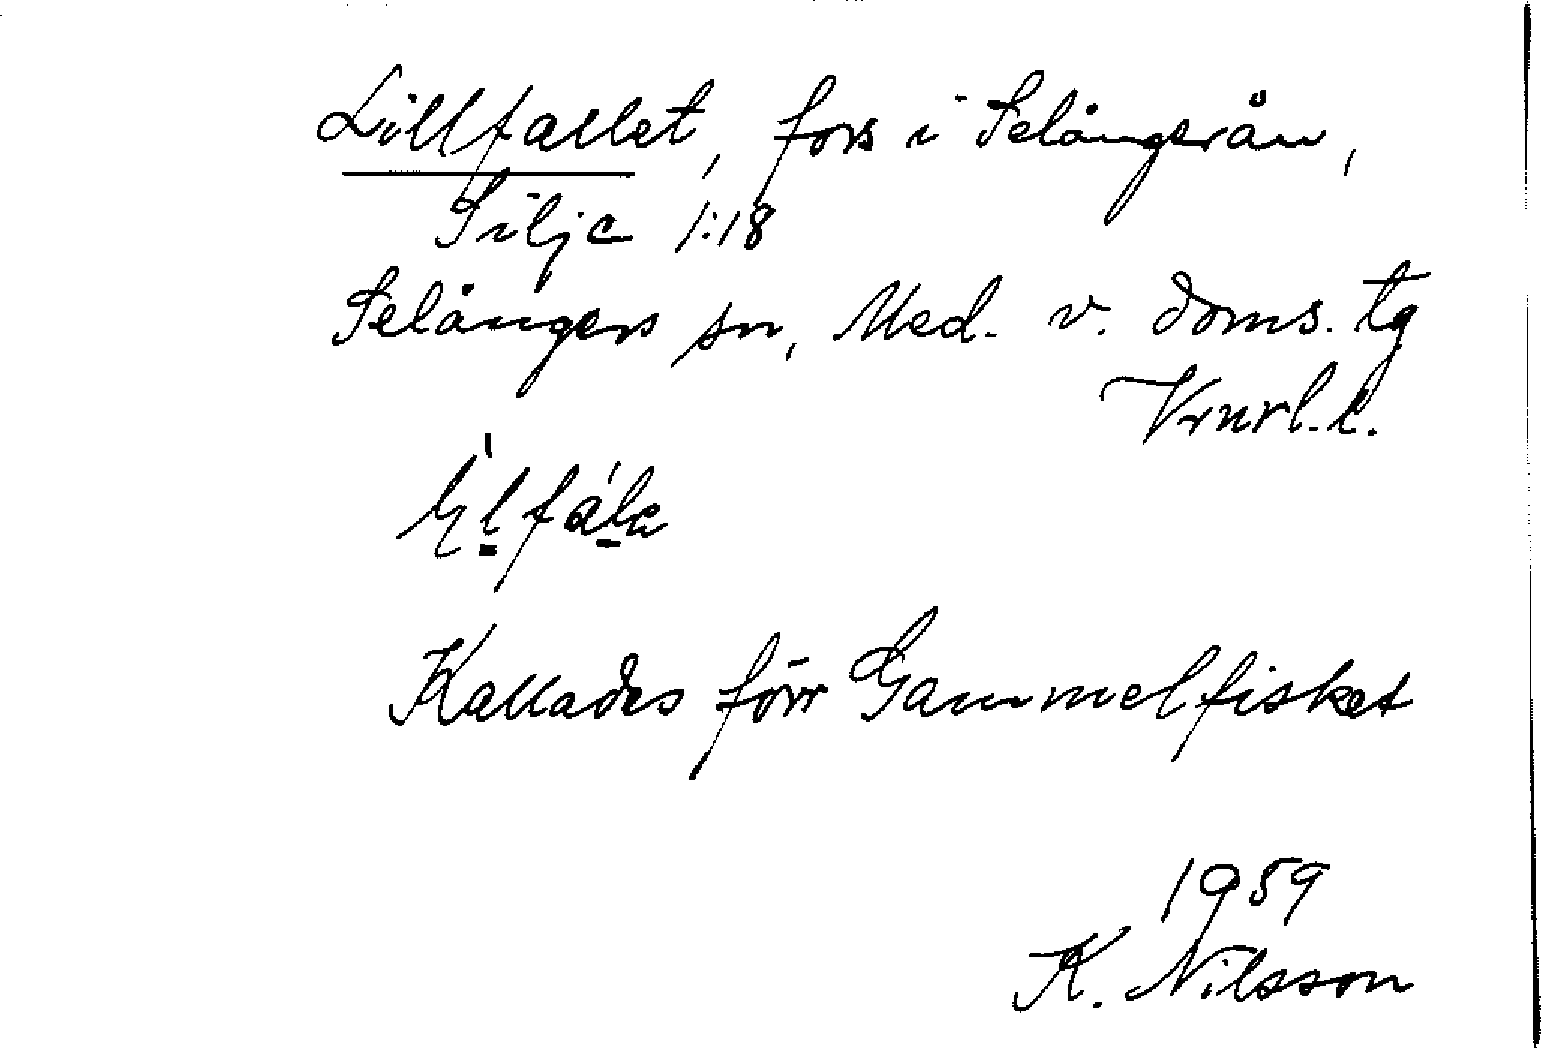 Lillfallet, fors i Selångerån,
Silje 1:18
Selångers sn, Med. v. doms. tg
Vrnrl. l.
Kallades förr Gammelfisket
1959
K. Nilsson